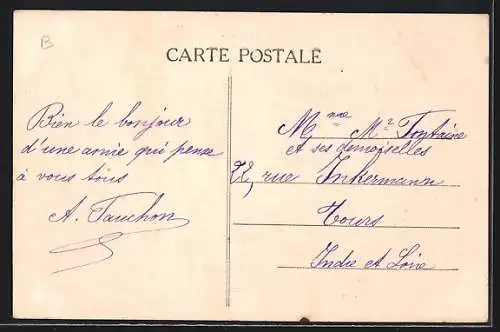 B
CARTE POSTALE
Bien le bonjour
d'une amie qui pense
à vous tous
A. Fauchon
Mme Mr Fontaine
et ses demoiselles
22, rue Inkermann
Tours
Indre et Loire